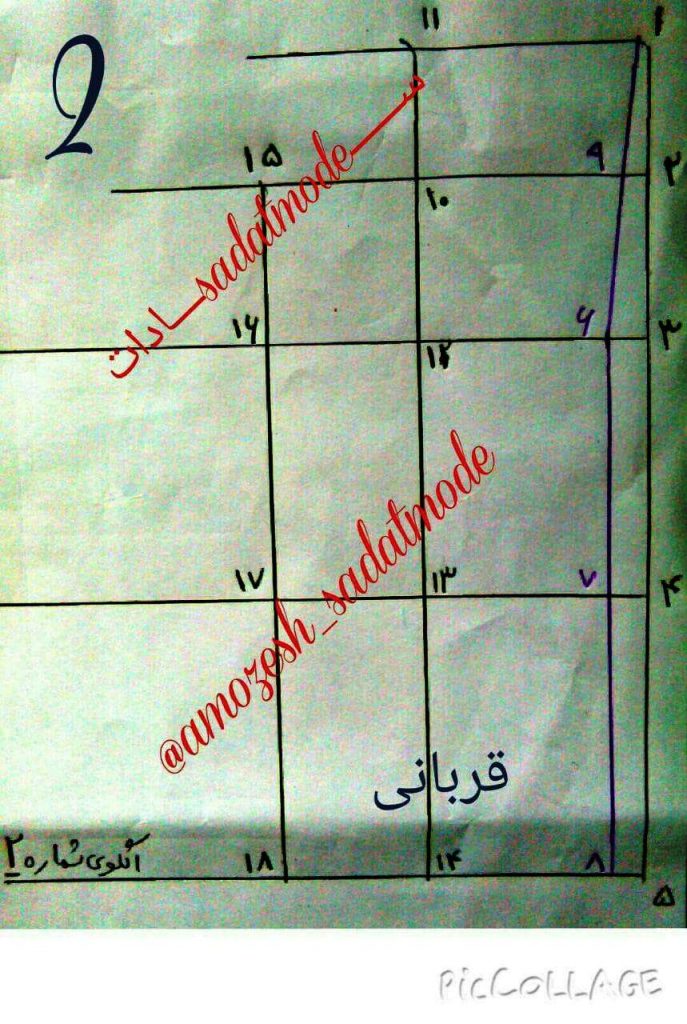 2
۱۱ ۱
۱۵ ۹ ۲
۱۰
سادات_sadatmode
۱۶ ۶ ۳
۱۲
۱۷ ۱۳ ۷ ۴
@amozesh_sadatmode
قربانی
الگوی شماره ۲ ۱۸ ۱۴ ۸
۵
PicCollage